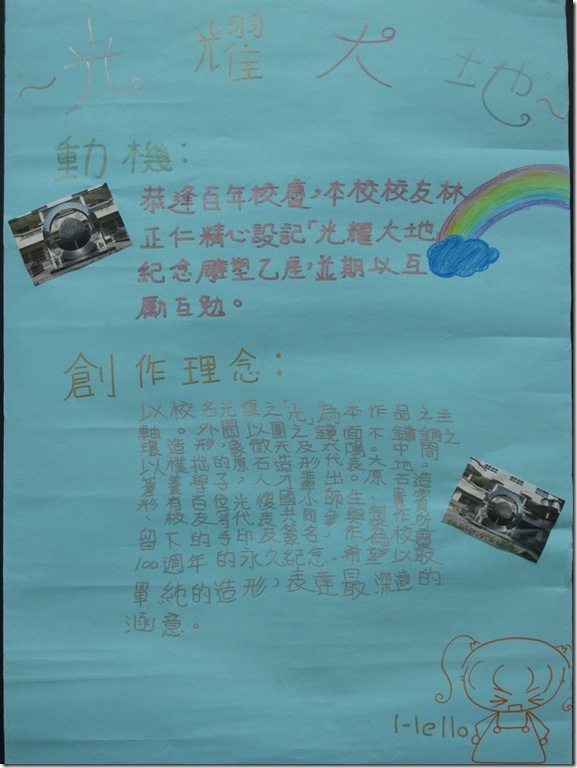 ～光耀大地～
動機：
恭逢百年校慶，本校校友林
正仁精心設記「光耀大地」
紀念雕塑乙座，並期以互
勵互勉。
創作理念：
以校名光復之「光」為本作品之主
軸。外圈以圓之鏡面不鏽鋼之
環造形，象徵天及太陽。中間
以樸拙的原石造形代表大地
了人才
百位光復國小師生
有校友等代表共同參與
留下的手印及簽名，作為校
100週年的永久紀念。希望以最
單純的造形，表達最深遠的
涵意。
Hello